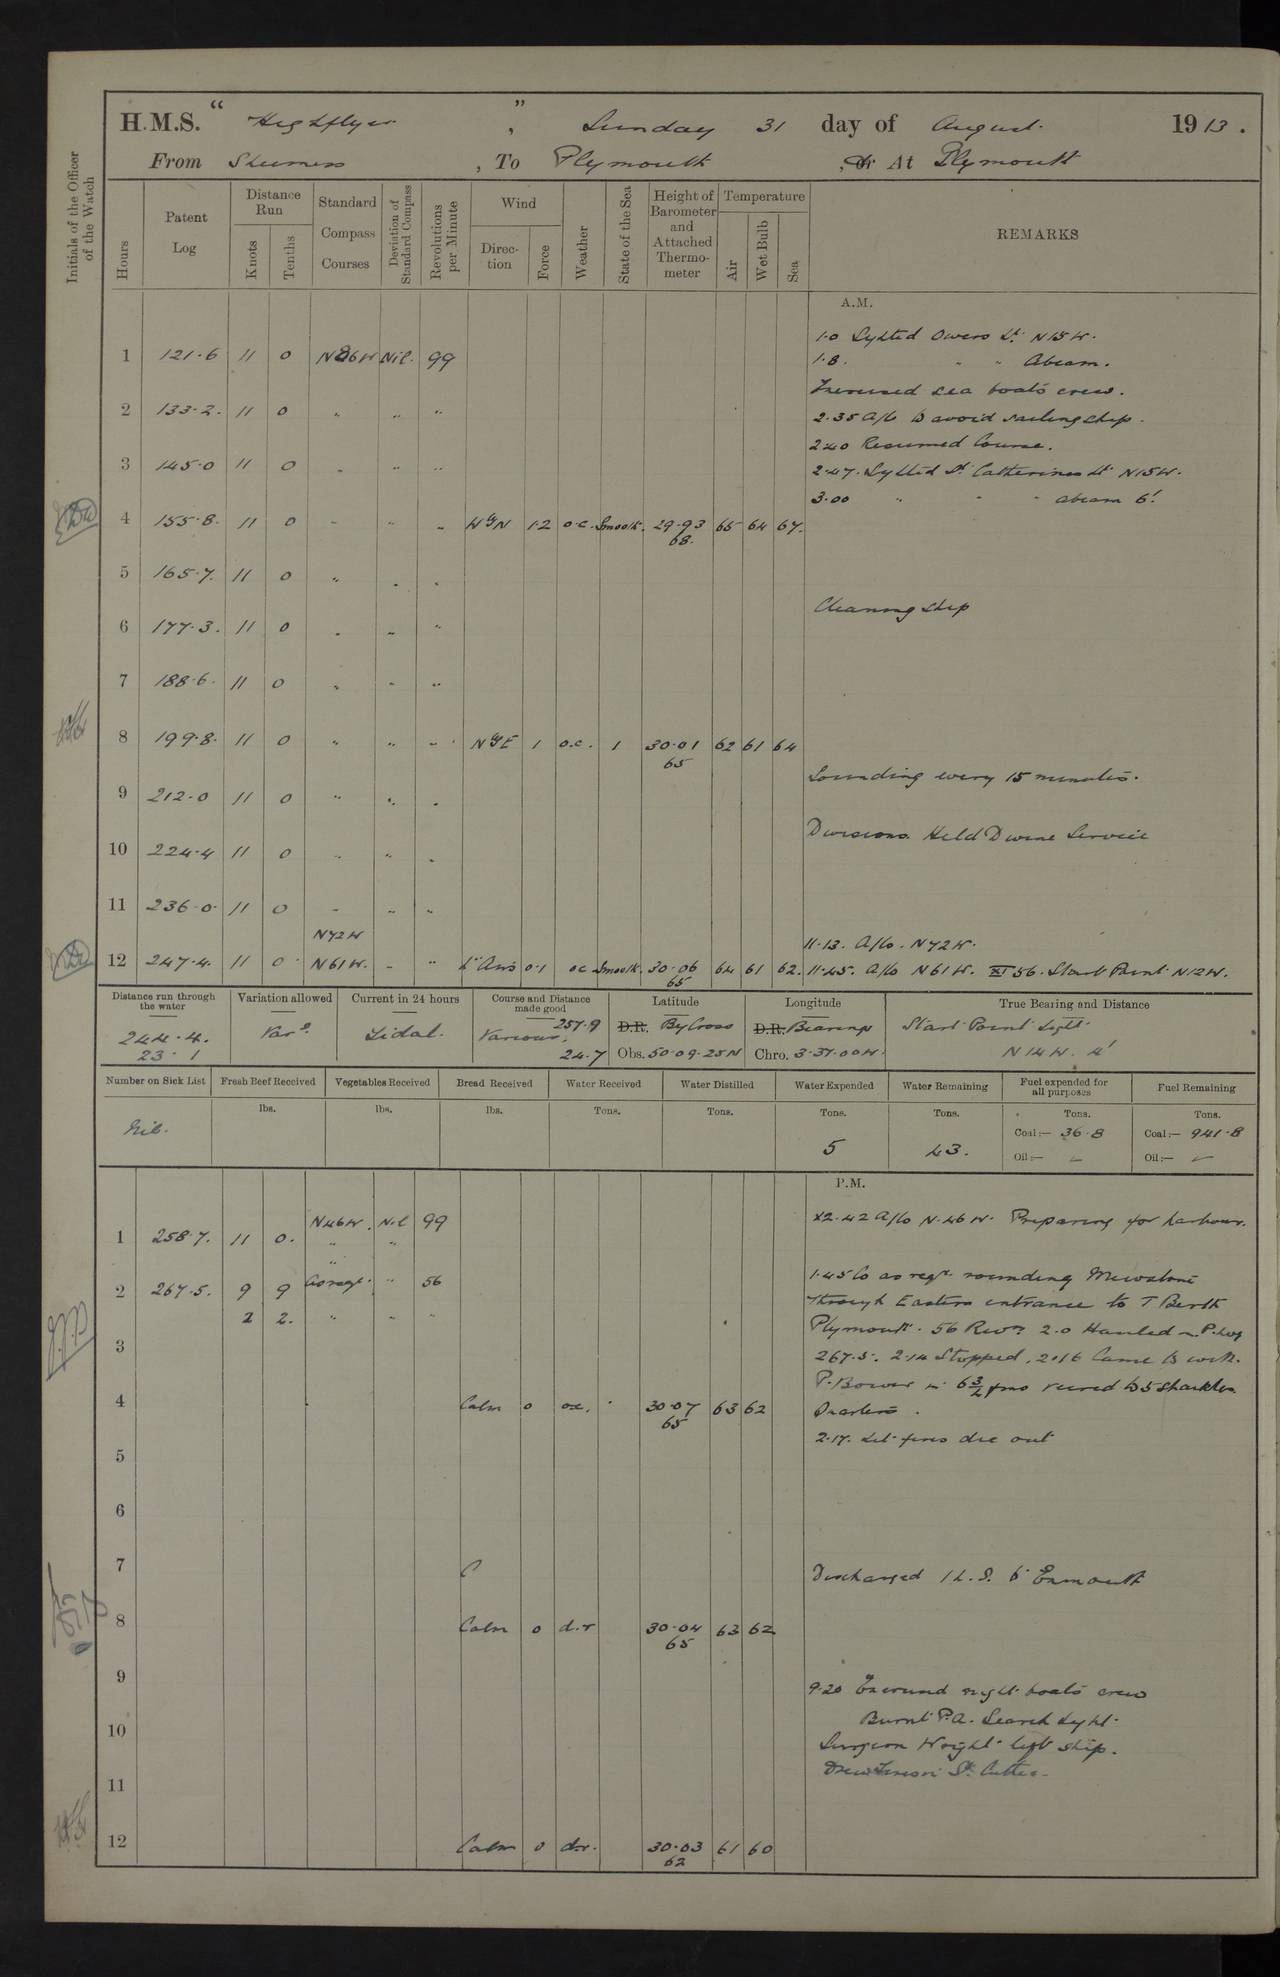 H.M.S. " Highflyer ", Sunday 31 day of August 1913.
From Sheerness, To Plymouth, Or At Plymouth
Initials of the Officer of the Watch
Hours
Patent Log
Distance Run
Knots
Tenths
Standard Compass Courses
Deviation of Standard Compass
Revolutions per Minute
Wind
Direction
Force
Weather
State of the Sea
Height of Barometer and Attached Thermometer
Temperature
Air
Wet Bulb
Sea
REMARKS
A.M.
1.0 Sighted Owers Lt. N15W.
1 121.6 11 0 N86W Nil. 99
1.8. " " Abeam.
Exercised sea boats crew.
2 133.2. 11 0 " " "
2.35 A/c to avoid sailing ship.
2.40 Resumed Course.
3 145.0 11 0 " " "
2.47. Sighted St. Catherines Lt. N15W.
3.00 " " " abeam 6'.
4 155.8. 11 0 " " " WyN 1.2 o.c. Smooth. 29.93 65 64 67.
68.
5 165.7. 11 0 " " "
Cleaning ship
6 177.3. 11 0 " " "
7 188.6. 11 0 " " "
8 199.8. 11 0 " " " NyE 1 o.c. 1 30.01 62 61 64
65
Sounding every 15 minutes.
9 212.0 11 0 " " "
Divisions. Held Divine Service
10 224.4 11 0 " " "
11 236.0. 11 0 " " "
N72W
11.13. A/Co. N72W.
12 247.4. 11 0 N61W. " " Lt Airs 0.1 oc Smooth. 30.06 64 61 62.
65
11.45. A/Co N61W. XI 56. Start Point N12W.
Distance run through the water
244.4.
23.1
Variation allowed
Var s.
Current in 24 hours
Tidal.
Course and Distance made good
Various. 257.9
24.7
Latitude
D.R. By Cross
Obs. 50.09.25N
Longitude
D.R. Bearings
Chro. 3.37.00W.
True Bearing and Distance
Start Point Light
N14W. 4'
Number on Sick List
Nil.
Fresh Beef Received
lbs.
Vegetables Received
lbs.
Bread Received
lbs.
Water Received
Tons.
Water Distilled
Tons.
Water Expended
Tons.
5
Water Remaining
Tons.
43.
Fuel expended for all purposes
Tons.
Coal:— 36.8
Oil:— –
Fuel Remaining
Tons.
Coal:— 941.8
Oil:— –
P.M.
N46W. Nil 99
12.42 A/Co N.46W. Preparing for harbour.
1 258.7. 11 0. " "
"
1.45 Co as reqr. rounding Mewstone
2 267.5. 9 9 As reqr. " 56
through Eastern entrance to T Berth
2 2. " " "
Plymouth. 56 Revs. 2.0 Hauled in P. Log
3
267.5. 2.14 Stopped. 2.16 Came to with.
P. Bower in 6 3/4 fms veered to 5 shackles.
4 Calm 0 o.c. 30.07 63 62
65
Quarters.
2.17. Let fires die out
5
6
7
Discharged 1 L.S. to Exmouth
8 Calm 0 d.r 30.04 63 62
65
9
9.20 Exercised night boats crew
Burnt P.A. Search Light.
10
Surgeon Wright left ship.
11
12 Calm 0 d.r. 30.03 61 60
62